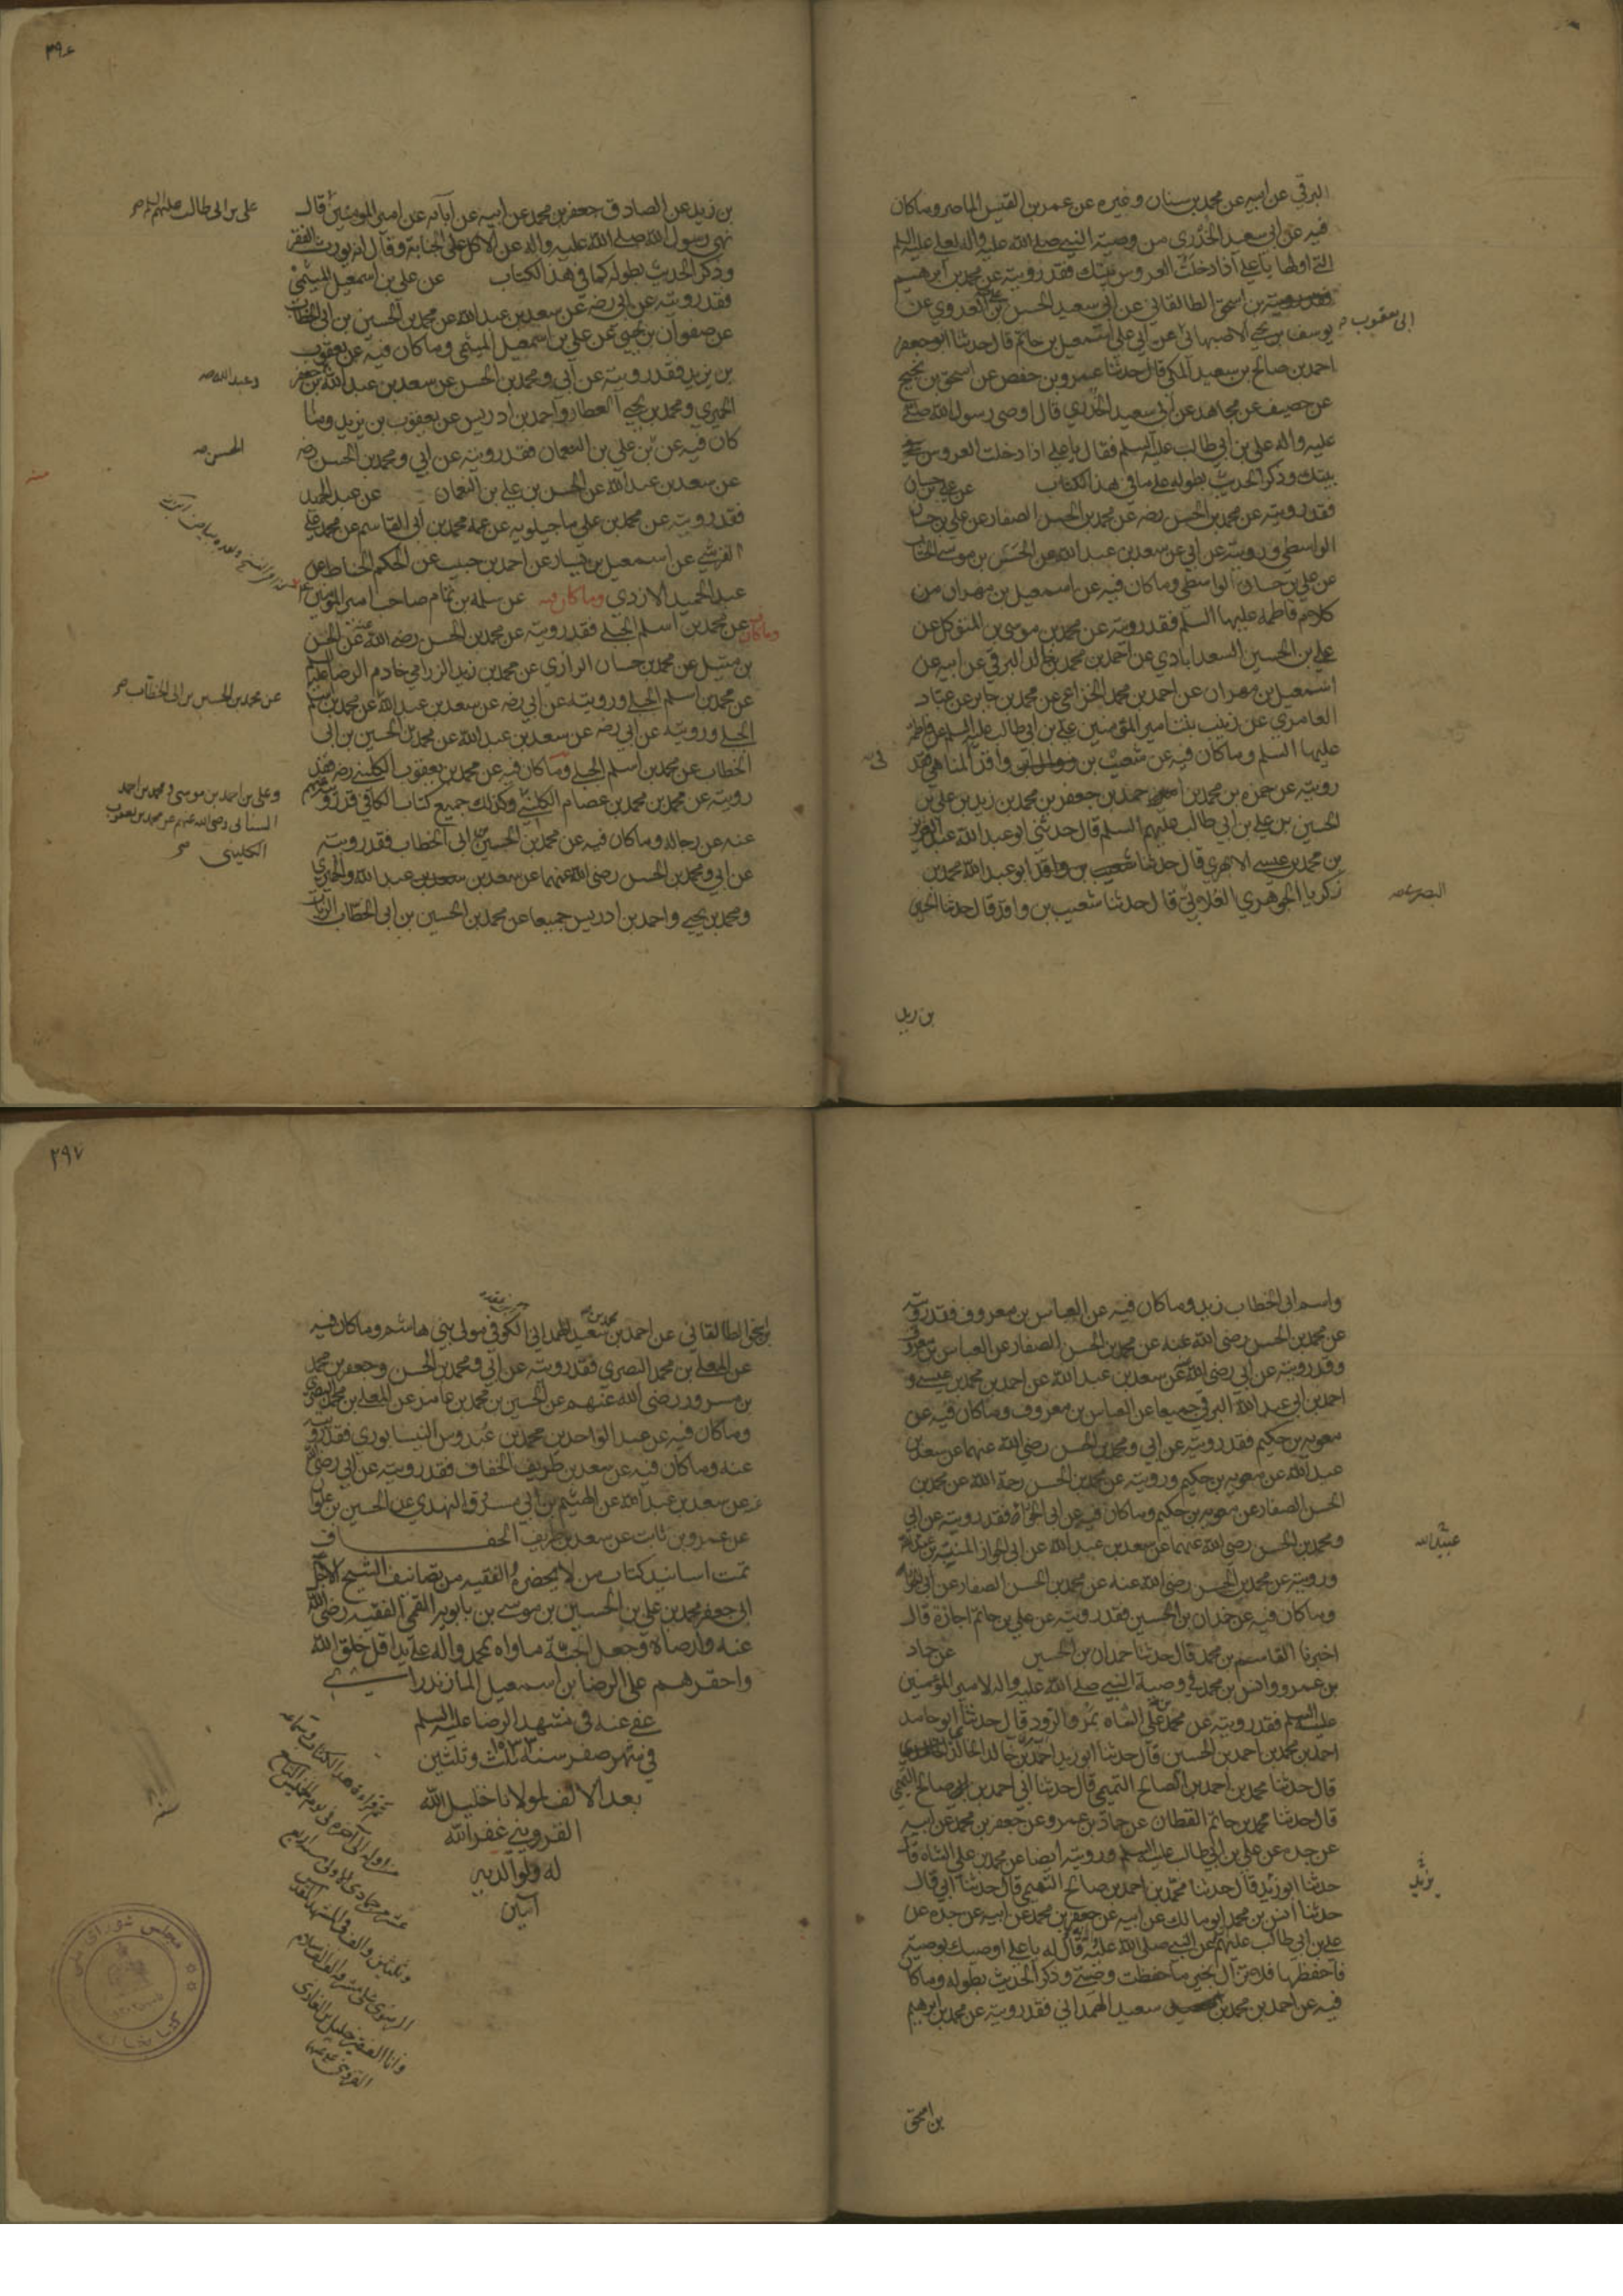 البرقي عن ابيه عن محمد بن سنان وغيره عن عمر بن القيس الماصر وما كان
فيه عن ابي سعيد الخدري من وصية النبي صلى الله عليه واله لعلي عليه السلم
التي اولها يا علي اذا دخلت العروس بيتك فقد رويته عن محمد بن ابرهيم
بن اسحق الطالقاني عن ابي سعيد الحسن بن علي العدوي عن
يوسف بن يحيى الاصبهاني عن ابي علي اسمعيل بن حاتم قال حدثنا ابو جعفر
ابي يعقوب
احمد بن صالح بن سعيد المكي قال حدثنا عمرو بن حفص عن اسحق بن نجيح
عن حصيف عن مجاهد عن ابي سعيد الخدري قال اوصى رسول الله صلى الله
عليه واله علي بن ابي طالب عليه السلم فقال يا علي اذا دخلت العروس
بيتك وذكر الحديث بطوله على ما في هذا الكتاب عن علي بن حسان
فقد رويته عن محمد بن الحسن رضه عن محمد بن الحسن الصفار عن علي بن حسان
الواسطي ورويته عن ابي عن سعد بن عبد الله عن الحسن بن موسى الخشاب
عن علي بن حسان الواسطي وما كان فيه عن اسمعيل بن مهران من
كلام فاطمة عليها السلم فقد رويته عن محمد بن موسى بن المتوكل عن
علي بن الحسين السعدابادي عن احمد بن محمد بن خالد البرقي عن ابيه عن
اسمعيل بن مهران عن احمد بن محمد الخزاعي عن محمد بن جابر عن عباد
العامري عن زينب بنت امير المؤمنين علي بن ابي طالب عليه السلم عن فاطمة
عليها السلم وما كان فيه عن شعيب بن واقد المناهي فقد
رويته عن حمزه بن محمد بن احمد بن جعفر بن محمد بن زيد بن علي بن
الحسين بن علي بن ابي طالب عليهم السلم قال حدثني ابو عبد الله عبد العزيز
بن محمد بن عيسى الابهري قال حدثنا ابو عبد الله محمد بن
زكريا الجوهري الغلابي قال حدثنا شعيب بن واقد قال حدثنا الحسين
البصري
بن زيد
بن زيد عن الصادق جعفر بن محمد عن ابيه عن آبائه عن امير المؤمنين قال
علي بن ابي طالب عليهم السلم
نهى رسول الله صلى الله عليه واله عن الاكل على الجنابة وقال انه يورث الفقر
وذكر الحديث بطوله كما في هذا الكتاب عن علي بن اسمعيل الميثمي
فقد رويته عن ابي رضه عن سعد بن عبد الله عن محمد بن الحسين بن ابي الخطاب
عن صفوان بن يحيى عن علي بن اسمعيل الميثمي وما كان فيه عن يعقوب
بن يزيد فقد رويته عن ابي ومحمد بن الحسن عن سعد بن عبد الله بن جعفر
وعبد الله
الحميري ومحمد بن يحيى العطار واحمد بن ادريس عن يعقوب بن يزيد وما
كان فيه عن بن علي بن النعمان فقد رويته عن ابي ومحمد بن الحسن رضه
الحسن
عن سعد بن عبد الله عن الحسن بن علي بن النعمان عن عبد الحميد
فقد رويته عن محمد بن علي ماجيلويه عن عمه محمد بن ابي القاسم عن محمد بن علي
القرشي عن اسمعيل بن يسار عن احمد بن حبيب عن الحكم الخياط عن
عبد الحميد الازدي وما كان فيه عن سلمه بن تمام صاحب امير المؤمنين
وما كان عن محمد بن اسلم الجبلي فقد رويته عن محمد بن الحسن رضي الله عنه عن الحسن
بن متيل عن محمد بن حسان الرازي عن محمد بن زيد الرزامي خادم الرضا عليه السلم
عن محمد بن اسلم الجبلي ورويته عن ابي رضه عن سعد بن عبد الله عن محمد بن اسلم
عن محمد بن الحسين بن ابي الخطاب
الجبلي ورويته عن ابي رضه عن سعد بن عبد الله عن محمد بن الحسين بن ابي
الخطاب عن محمد بن اسلم الجبلي وما كان فيه عن محمد بن يعقوب الكليني رضه فقد
رويته عن محمد بن محمد بن عصام الكليني وكذلك جميع كتاب الكافي فقد رويته
وعلي بن احمد بن موسى ومحمد بن احمد
السناني رضي الله عنهم عن محمد بن يعقوب
الكليني
عنه عن رجاله وما كان فيه عن محمد بن الحسين بن ابي الخطاب فقد رويته
عن ابي ومحمد بن الحسن رضي الله عنهما عن سعد بن عبد الله والحميري
ومحمد بن يحيى واحمد بن ادريس جميعا عن محمد بن الحسين بن ابي الخطاب الزيات
واسم ابي الخطاب زيد وما كان فيه عن العباس بن معروف فقد رويته
عن محمد بن الحسن رضي الله عنه عن محمد بن الحسن الصفار عن العباس بن معروف
وقد رويته عن ابي رضي الله عنه عن سعد بن عبد الله عن احمد بن محمد بن عيسى و
احمد بن ابي عبد الله البرقي جميعا عن العباس بن معروف وما كان فيه عن
معويه بن حكيم فقد رويته عن ابي ومحمد بن الحسن رضي الله عنهما عن سعد بن
عبد الله عن معويه بن حكيم ورويته عن محمد بن الحسن رحمة الله عن محمد بن
الحسن الصفار عن معويه بن حكيم وما كان فيه عن ابي الجوزاء فقد رويته عن ابي
ومحمد بن الحسن رضي الله عنهما عن سعد بن عبد الله عن ابي الجوزاء المنبه بن عبد الله
عبيد الله
ورويته عن محمد بن الحسن رضي الله عنه عن محمد بن الحسن الصفار عن ابي الجوزاء
وما كان فيه عن حمدان بن الحسين فقد رويته عن علي بن حاتم اجازة قال
اخبرنا القاسم بن محمد قال حدثنا حمدان بن الحسين عن حماد
بن عمرو وانس بن محمد في وصية النبي صلى الله عليه واله لامير المؤمنين
عليه السلم فقد رويته عن محمد بن علي الشاه بمرو الرود قال حدثنا ابو حامد
احمد بن محمد بن احمد بن الحسين قال حدثنا ابو زيد احمد بن خالد الخالدي
قال حدثنا محمد بن احمد بن صالح التميمي قال حدثنا ابي احمد بن صالح التميمي
قال حدثنا محمد بن حاتم القطان عن حماد بن عمرو عن جعفر بن محمد عن ابيه
عن جده عن علي بن ابي طالب عليه السلم ورويته ايضا عن محمد بن علي الشاه قال
حدثنا ابو زيد قال حدثنا محمد بن احمد بن صالح التميمي قال حدثنا ابي قال
يزيد
حدثنا انس بن محمد ابو مالك عن ابيه عن جعفر بن محمد عن ابيه عن جده عن
علي بن ابي طالب عليهم عن النبي صلى الله عليه واله قال له يا علي اوصيك بوصية
فاحفظها فلا تزال بخير ما حفظت وصيتي وذكر الحديث بطوله وما كان
فيه عن احمد بن محمد بن سعيد الهمداني فقد رويته عن محمد بن ابرهيم
بن اسحق
بن اسحق الطالقاني عن احمد بن محمد بن سعيد الهمداني الكوفي مولى بني هاشم وما كان فيه
عن المعلى بن محمد البصري فقد رويته عن ابي ومحمد بن الحسن وجعفر بن محمد
بن مسرور رضي الله عنهم عن الحسين بن محمد بن عامر عن المعلى بن محمد البصري
وما كان فيه عن عبد الواحد بن محمد بن عبدوس النيسابوري فقد رويته
عنه وما كان فيه عن سعد بن طريف الخفاف فقد رويته عن ابي رضي الله
عن سعد بن عبد الله عن الهيثم بن ابي مسروق النهدي عن الحسين بن علوان
عن عمرو بن ثابت عن سعد بن طريف الخفاف
تمت اسانيد كتاب من لا يحضره الفقيه من تصانيف الشيخ الاجل
ابي جعفر محمد بن علي بن الحسين بن موسى بن بابويه القمي الفقيه رضي الله
عنه وارضاه وجعل الجنة ماواه بمحمد واله على يد اقل خلق الله
واحقرهم علي الرضا بن اسمعيل المازندراني
عفي عنه في مشهد الرضا عليه السلم
في شهر صفر سنه ۱۰۳۳ ثلث وثلثين
بعد الالف لمولانا خليل الله
القزويني غفر الله
له ولوالديه
آمين
تم قراءة هذا الكتاب
من اوله الى آخره في يوم الخميس التاسع
عشر من جمادى الاولى سنه اربع
وثلثين والف في المشهد المقدس
الرضوي على مشرفه الف سلام
وانا الفقير خليل بن الغازي
القزويني عفي عنهما
مجلس شوراى ملى
كتابخانه
۲۹۷